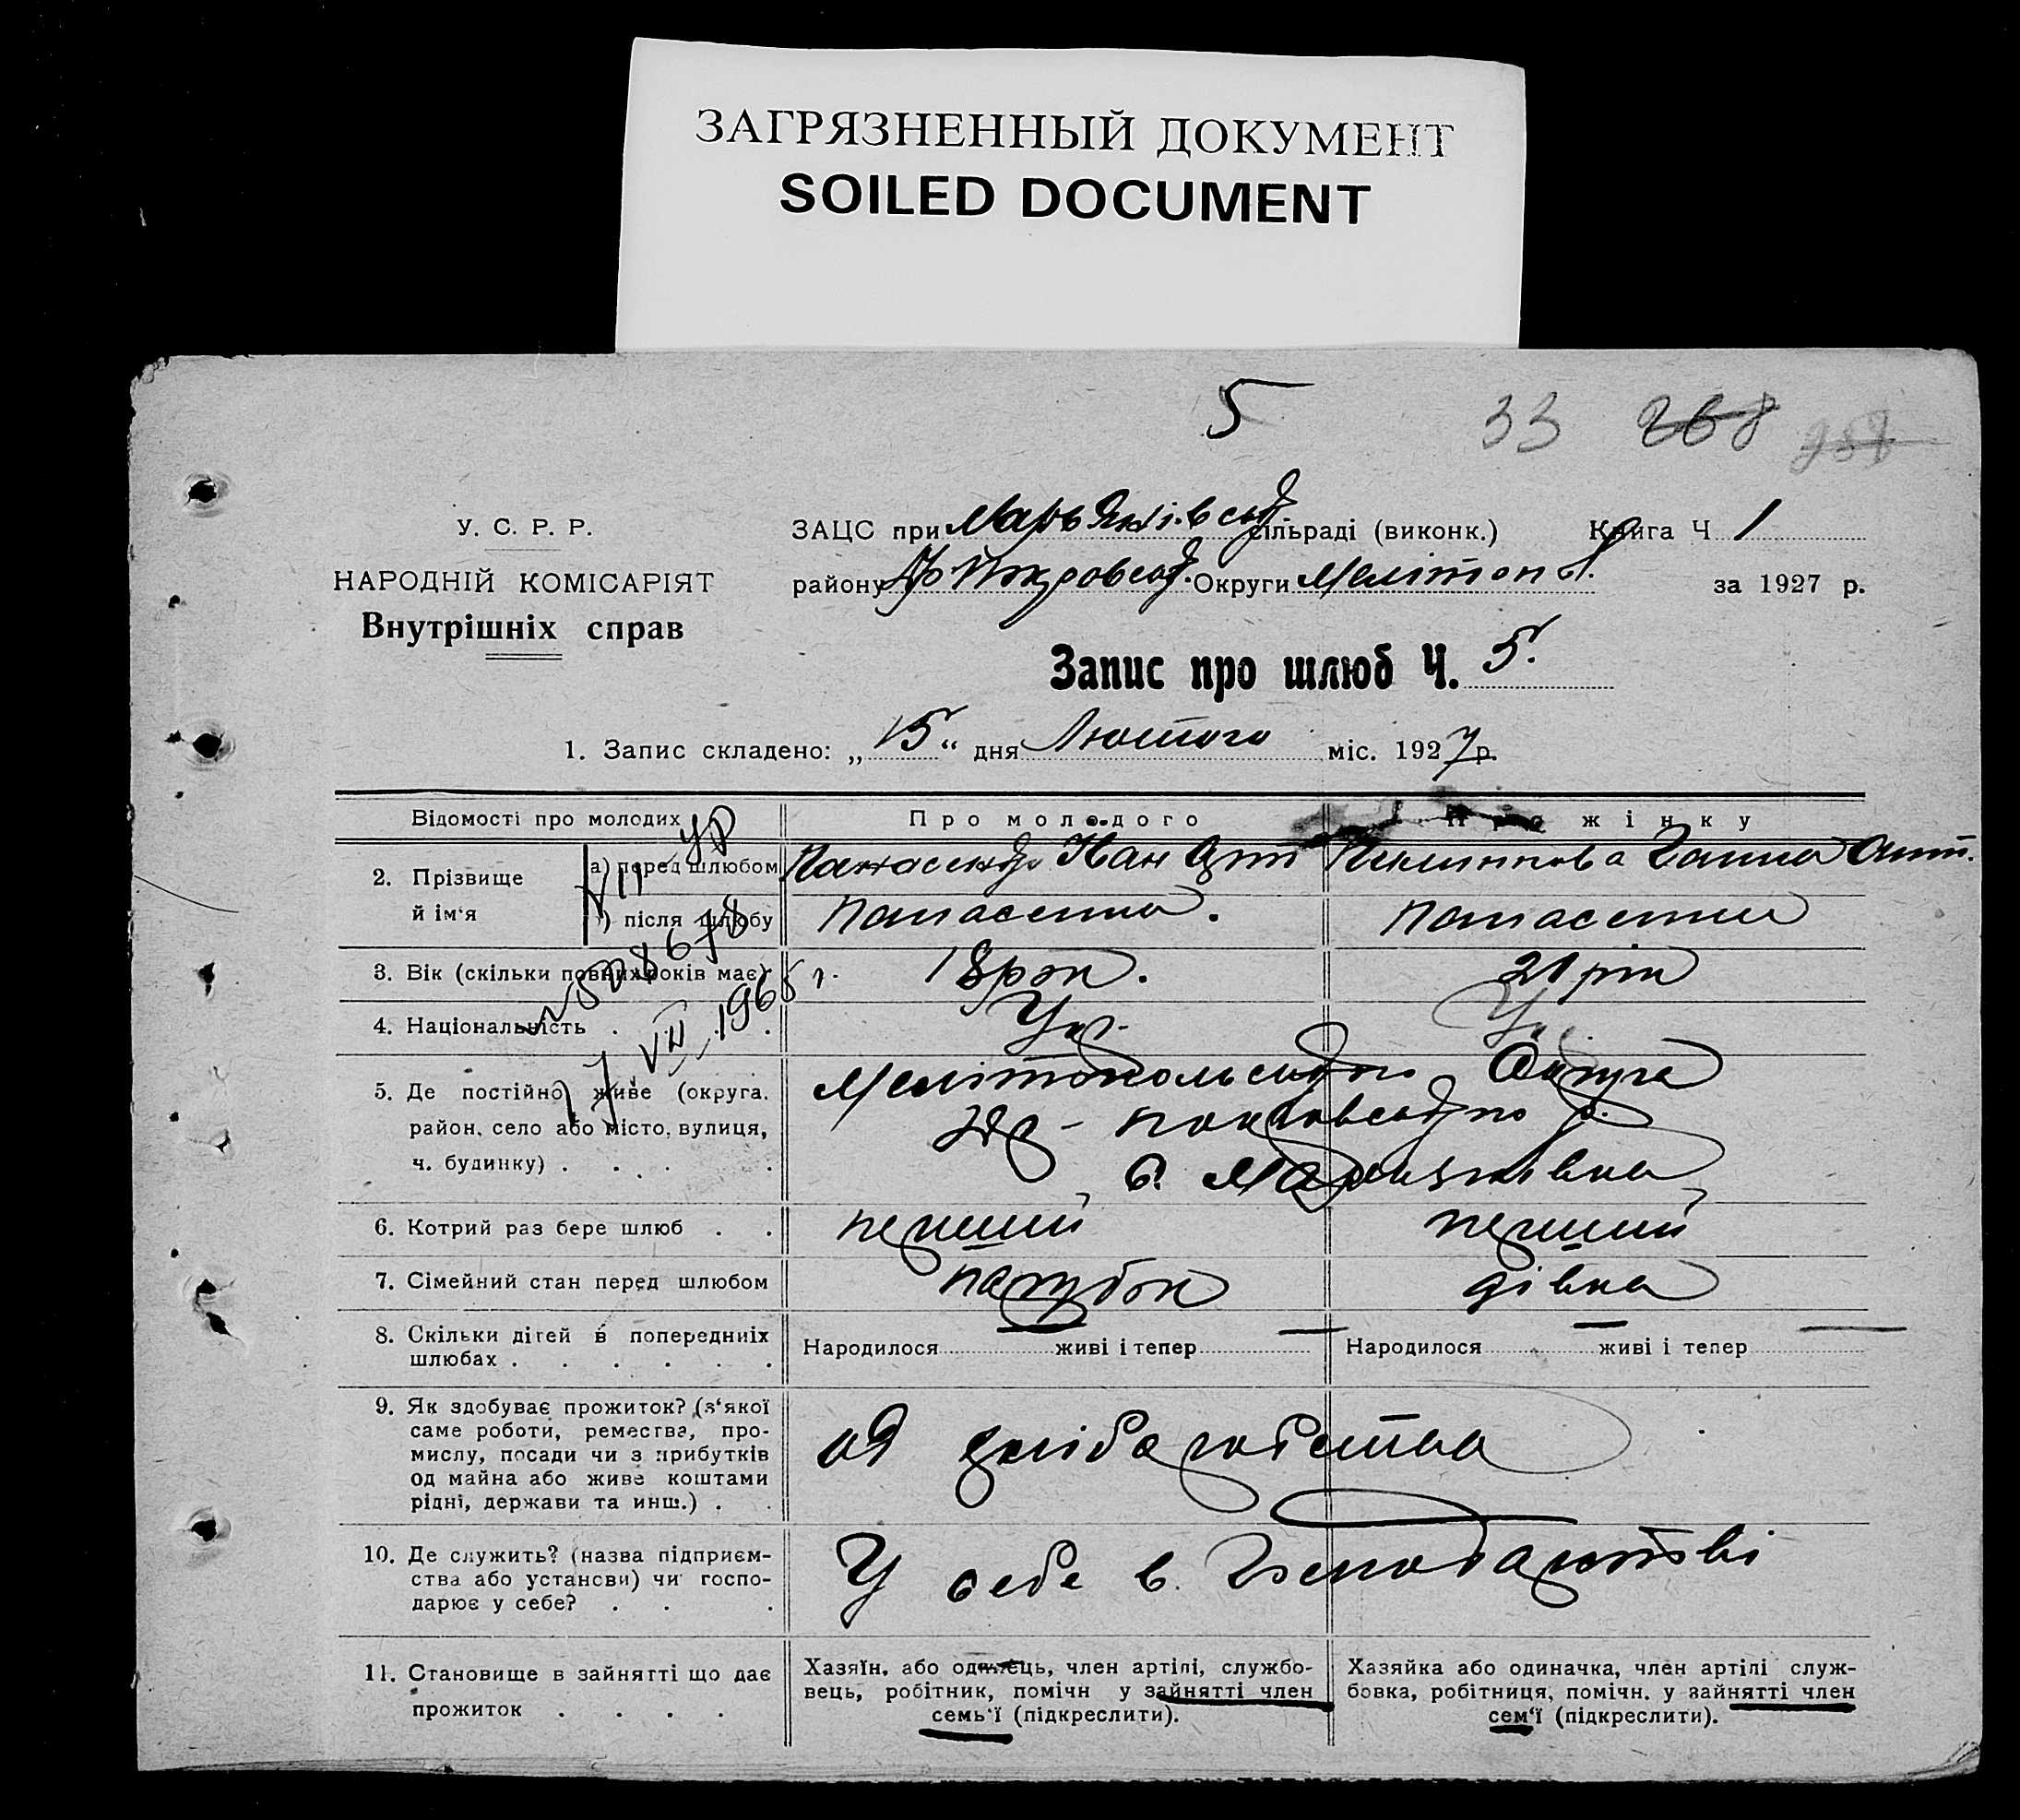 ЗАГРЯЗНЕННЫЙ ДОКУМЕНТ
SOILED DOCUMENT
5
33 268
У. С. Р. Р.
НАРОДНІЙ КОМІСАРІЯТ
Внутрішніх справ
ЗАЦС при сільраді (виконк.) Книга Ч 1
району Округи Мелітоп за 1927 р.
Запис про шлюб Ч. 5.
1. Запис складено: „15“ дня Лютого міс. 1927 р.
Відомості про молодих Про молодого Про жінку
2. Прізвище й ім‘я
а) перед шлюбом Іван Ганна Ант.
) після шлюбу Панасенко. Панасенко
3. Вік (скільки повних років має) 18 рок. 21 рік
4. Національність . . . Укр. Ук.
5. Де постійно живе (округа, район, село або місто, вулиця, ч. будинку) . . . .
Мелітопольського Округа
Покровського р.
с. Мар'янівка
17 VII 1968 г.
6. Котрий раз бере шлюб . . перший перший
7. Сімейний стан перед шлюбом парубок дівка
8. Скільки дітей в попередниіх шлюбах . . . . . .
Народилося — живі і тепер — Народилося — живі і тепер —
9. Як здобуває прожиток? (з‘якої
саме роботи, ремества, про-
мислу, посади чи з прибутків
од майна або живе коштами
рідні, держави та инш.) . .
од хліборобства
10. Де служить? (назва підприєм-
ства або установи) чи госпо-
дарює у себе? . . .
У себе в Господарстві
11. Становище в зайнятті що дає
прожиток . . . .
Хазяїн, або одинець, член артілі, службо-
вець, робітник, помічн у зайнятті член
семь‘ї (підкреслити).
Хазяйка або одиначка, член артілі служ-
бовка, робітниця, помічн. у зайнятті член
сем‘ї (підкреслити).